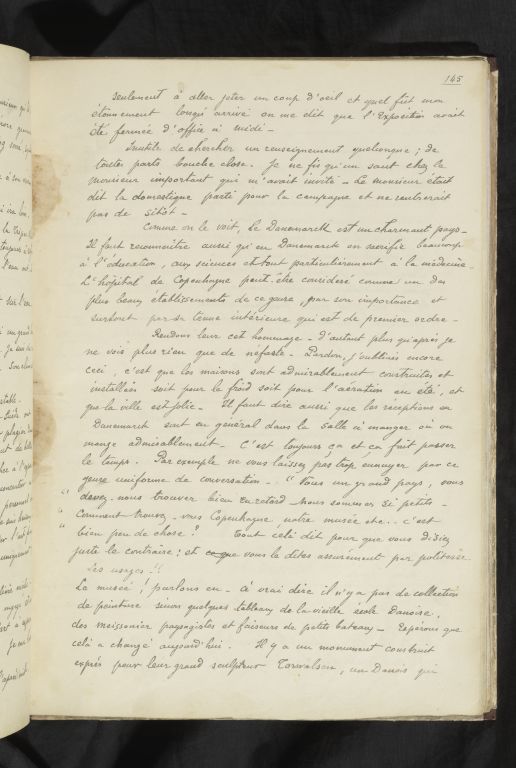 145
seulement à aller jeter un coup d'oeil et quel fut mon
étonnement lorsqu' arrivé on me dit que l'Exposition avait
été fermée d'office à midi -
Inutile de chercher un renseignement quelconque ; de
toutes parts bouche close. Je ne fis qu'un saut chez le
monsieur important qui m'avait invité - Le monsieur était
dit la domestique parti pour la campagne et ne rentrerait
pas de sitôt -
Comme on le voit, le Danemarck est un charmant pays -
Il faut reconnaître aussi qu'en Danemarck on sacrifie beaucoup
à l'éducation, aux sciences et tout particulièrement à la médecine -
L'hôpital de Copenhague peut-être considéré comme un des
plus beaux établissements de ce genre, par son importance et
surtout par sa tenue intérieure qui est de premier ordre -
Rendons leur cet hommage - d'autant plus qu'après je
ne vois plus rien que de néfaste - Pardon, j'oubliais encore
ceci, c'est que les maisons sont admirablement construites et
installées soit pour le froid soit pour l'aération en été, et
que la ville est jolie - Il faut dire aussi que les réceptions en
Danemarck sont en général dans la salle à manger où on
mange admirablement - C'est toujours ça et ça fait passer
le temps. Par exemple ne vous laissez pas trop ennuyer par ce
genre uniforme de conversation - " Vous un grand pays, vous
" devez nous trouver bien en retard nous sommes si petits -
" Comment trouvez-vous Copenhague, notre musée etc.. c'est
" bien peu de chose ? Tout celà dit pour que vous disiez
juste le contraire ; et que vous le dites assurément par politesse
Les usages !!
Le musée ! parlons en - à vrai dire il n'y a pas de collection
de peinture sinon quelques tableaux de la vieille école Danoise,
des meissonier paysagistes et faiseurs de petits bateaux - Espérons que
celà a changé aujourd'hui. Il y a un monument construit
exprès pour leur grand sculpteur Torwalsen, un Danois qui